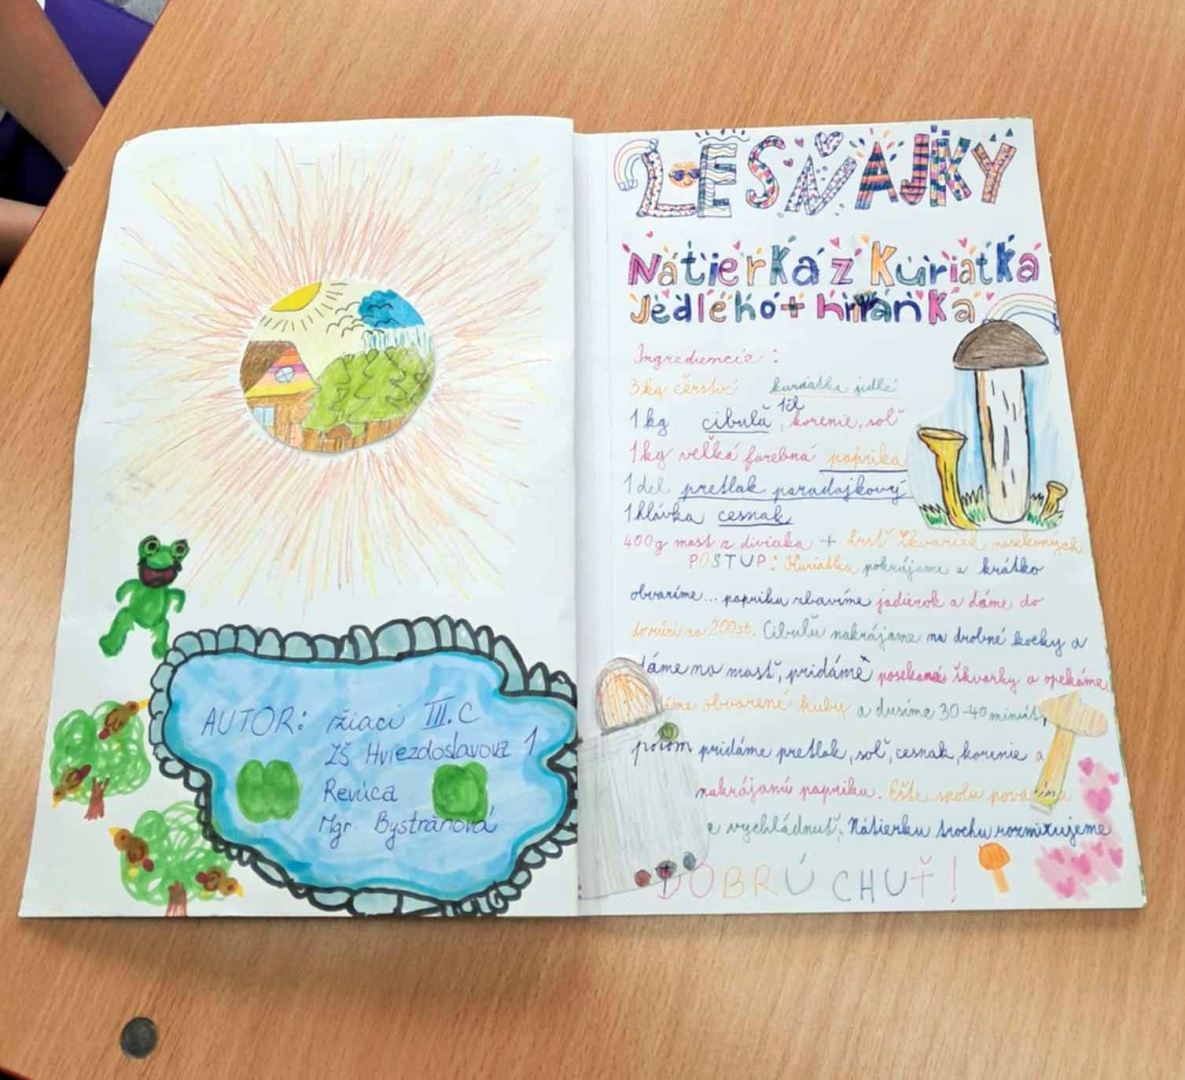 AUTOR: žiaci III.C
ZŠ Hviezdoslavova 1
Revúca
Mgr. Bystráňová
LESŇAJKY
Nátierka z Kuriatka
Jedlého + hrianka
Ingrediencie:
3 kg čerstvé kuriatka jedlé
1 kg cibuľa, korenie, soľ
1 kg veľká farebná paprika
1 del pretlak paradajkový
1 hlávka cesnak
400g masť z diviaka + hrsť škvariek posekaných
POSTUP: Kuriatka pokrájame a krátko
obvaríme... papriku zbavíme jadierok a dáme do
do rúri na 200st. Cibuľu nakrájame na drobné kocky a
dáme na masť, pridáme posekané škvarky a opekáme,
obvarené huby a dusíme 30-40 minút,
potom pridáme pretlak, soľ, cesnak korenie a
nakrájanú papriku. Ešte spolu
a vychladnuť, Nátierku trochu rozmixujeme
DOBRÚ CHUŤ!